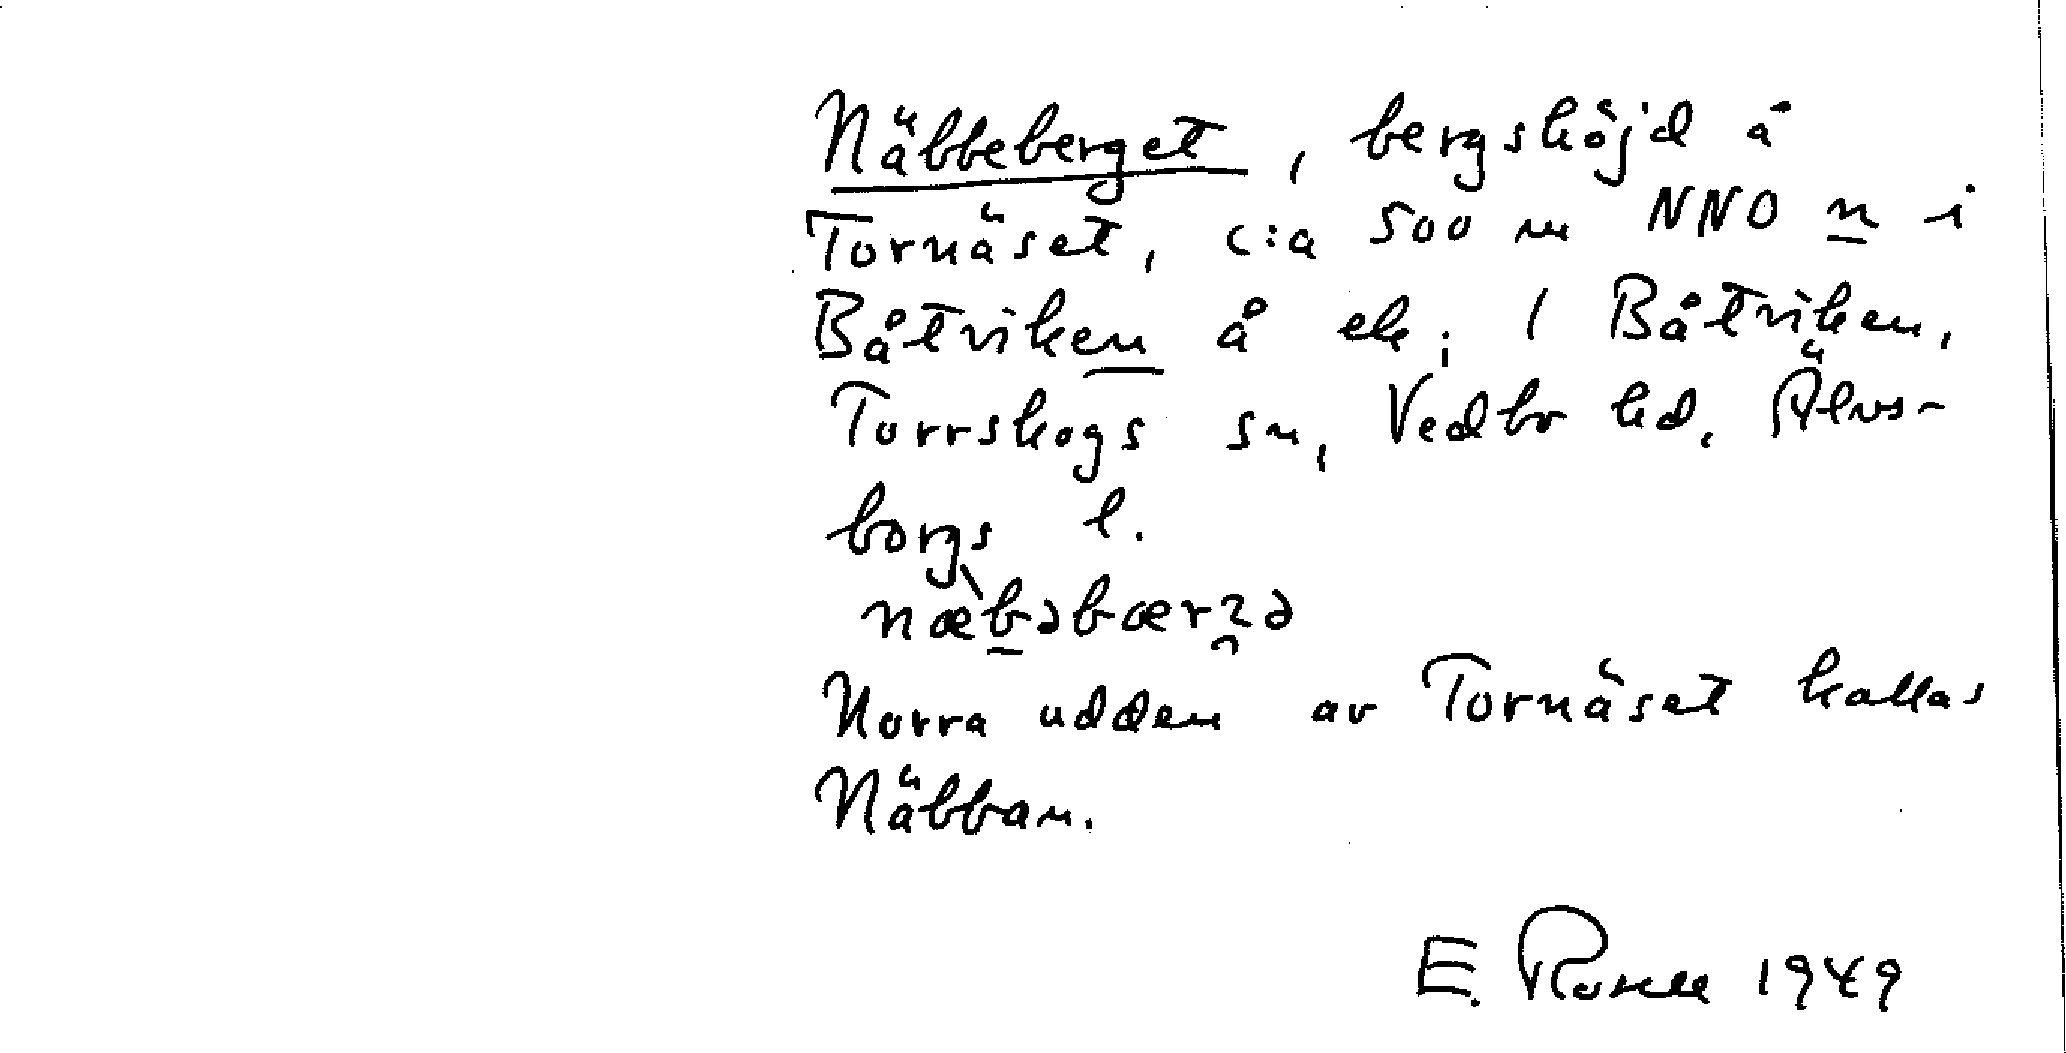 Näbbeberget, bergshöjd å
Tornäset, c:a 500 m NNO n i
Båtviken å ek; 1 Båtviken,
Torrskogs sn, Vedbo hd, Älvs-
borgs l.
Norra udden av Tornäset kallas
Näbban.
E. Rosell 1949